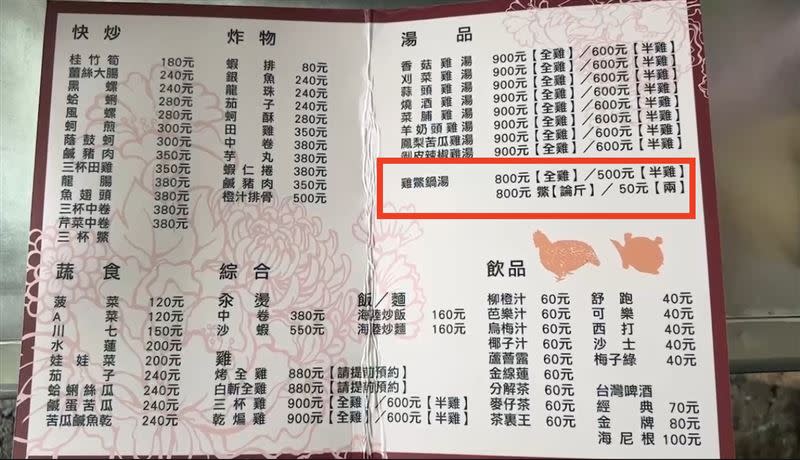 快炒
桂竹筍 180元
薑絲大腸 240元
黑螺 240元
蛤蜊 280元
風螺 280元
蚵煎 300元
蔭鼓蚵 300元
鹹豬肉 350元
三杯田雞 350元
龍腸 380元
魚翅頭 380元
三杯中卷 380元
芹菜中卷 380元
三杯鱉
炸物
蝦排 80元
銀魚 240元
龍珠 240元
茄子 240元
蚵酥 280元
田雞 350元
中卷 380元
芋丸 300元
蝦仁捲 300元
鹹豬肉 350元
橙汁排骨 500元
湯品
香菇雞湯 900元【全雞】/600元【半雞】
刈菜雞湯 900元【全雞】/600元【半雞】
蒜頭雞湯 900元【全雞】/600元【半雞】
燒酒雞湯 900元【全雞】/600元【半雞】
菜脯雞湯 900元【全雞】/600元【半雞】
羊奶頭雞湯 900元【全雞】/600元【半雞】
鳳梨苦瓜雞湯 900元【全雞】/600元【半雞】
剝皮辣椒雞湯 900元【全雞】/600元【半雞】
雞鱉鍋湯 800元【全雞】/500元【半雞】
800元 鱉【論斤】/50元【兩】
蔬食
菠菜 120元
A菜 120元
川七 150元
水蓮 200元
娃娃菜 200元
茄子 240元
蛤蜊絲瓜 240元
鹹蛋苦瓜 240元
苦瓜鹹魚乾 240元
綜合
汆燙
中卷 380元
沙蝦 550元
雞
烤全雞 880元【請提前預約】
白斬全雞 880元【請提前預約】
三杯雞 900元【全雞】/600元【半雞】
乾煸雞 900元【全雞】/600元【半雞】
飯/麵
海陸炒飯 160元
海陸炒麵 160元
飲品
柳橙汁 60元
芭樂汁 60元
烏梅汁 60元
椰子汁 60元
蘆薈露 60元
金線蓮 60元
分解茶 60元
麥仔茶 60元
茶裏王 60元
舒跑 40元
可樂 40元
西打 40元
沙士 40元
梅子綠 40元
台灣啤酒
經典 70元
金牌 80元
海尼根 100元